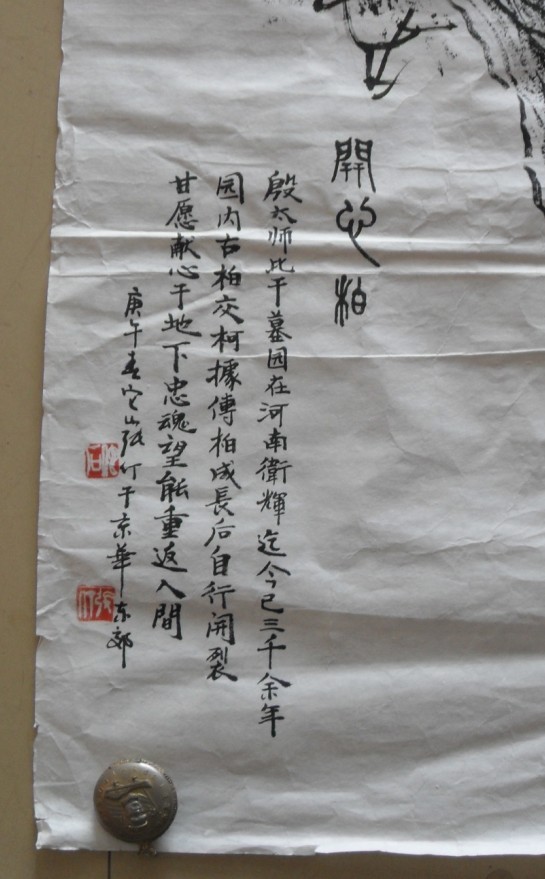 開心柏
殷太师比干墓园在河南衛輝迄今已三千余年
园内古柏交柯據傳柏成長后自行開裂
甘愿献心于地下忠魂望能重返人間
庚午春它山张仃于京華东郊
张仃